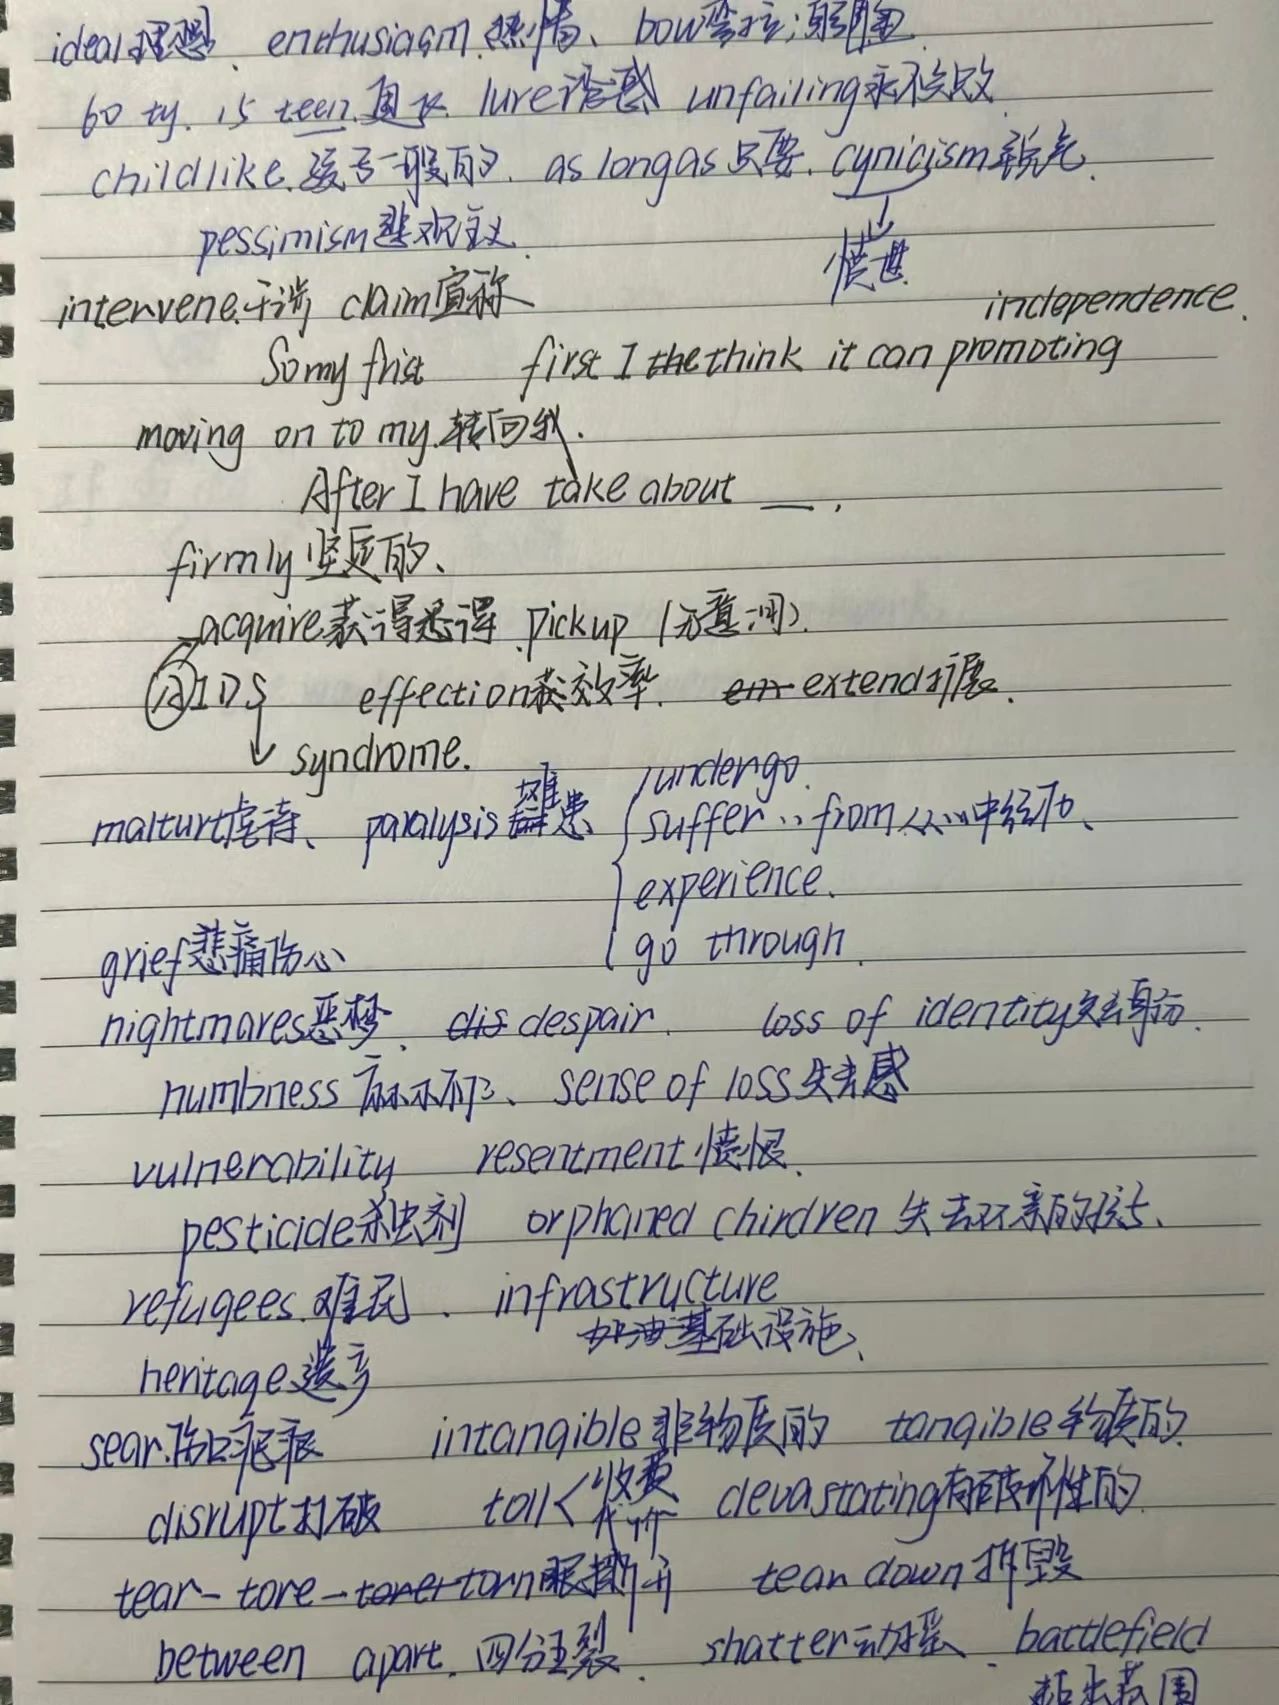 ideal理想、enthusiasm.热情、bow弯拉;
60 ty. 15 teen. lure诱惑 unfailing永不失败
childlike.孩子一般的. as long as 只要. cynicism
pessimism悲观主义.
愤世.
intervene.干涉 claim宣称
independence.
So my frist first I the think it can promoting
moving on to my.转向我.
After I have take about __.
firmly 坚定的、
acquire获得悉得.pick up (无意间).
AIDS effection获效率. em extend扩展.
syndrome.
malturt虐待、paralysis瘫患
undergo.
suffer..from从...中经历、
experience.
go through.
grief悲痛伤心
nightmares恶梦、dis despair. loss of identity失去身份.
numbness 麻木不仁、sense of loss失去感
vulnerability resentment愤恨.
pesticide杀虫剂 orphaned chirdren 失去双亲的孩子、
refugees.难民、infrastructure
加油基础设施、
heritage遗产
sear.伤口疤痕 intangible非物质的 tangible物质的
disrupt打破 toll<收费 代价 devastating有破坏性的
tear - tore - torn 撕开 tear down拆毁
between apart.四分五裂. shatter动摇、battlefield
范围